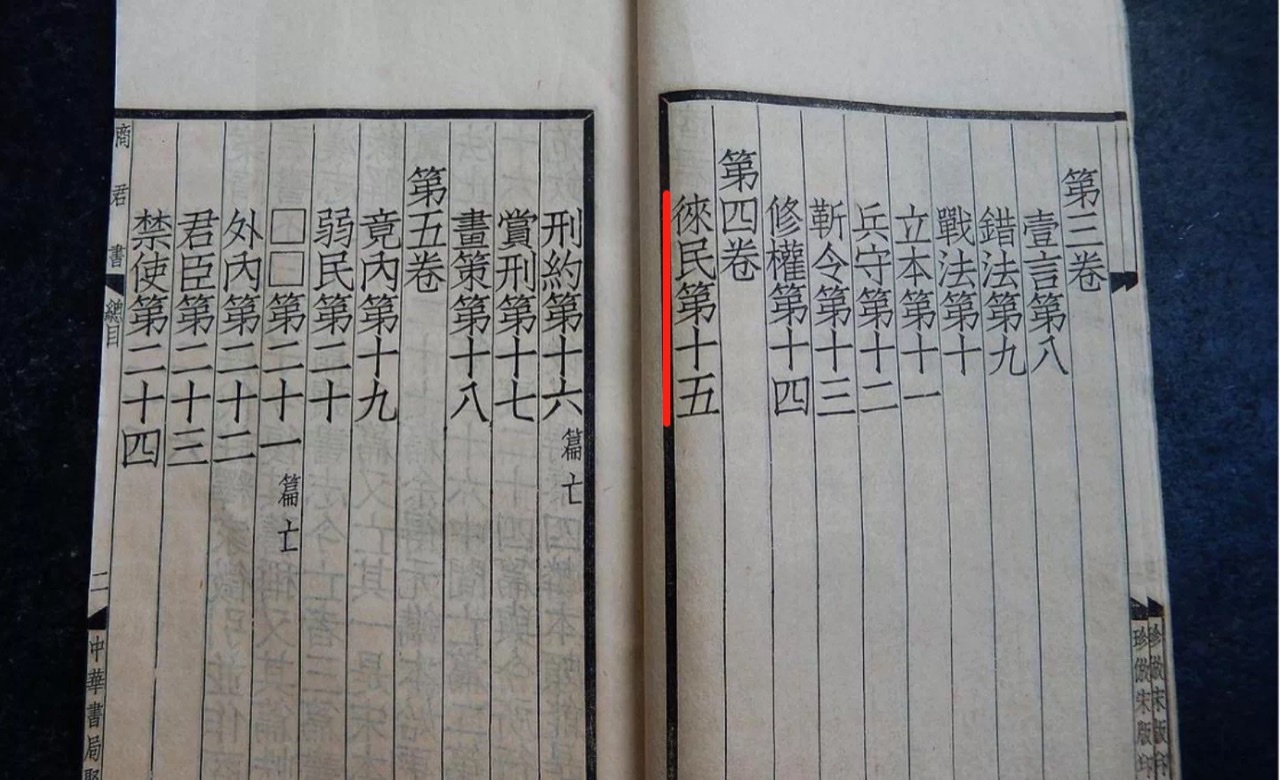 第三卷
壹言第八
錯法第九
戰法第十
立本第十一
兵守第十二
靳令第十三
修權第十四
第四卷
徠民第十五
刑約第十六 篇亡
賞刑第十七
畫策第十八
第五卷
竟內第十九
弱民第二十
□□第二十一 篇亡
外內第二十二
君臣第二十三
禁使第二十四
商君書 總目
二
中華書局聚
珍倣宋版印
珍倣宋版印